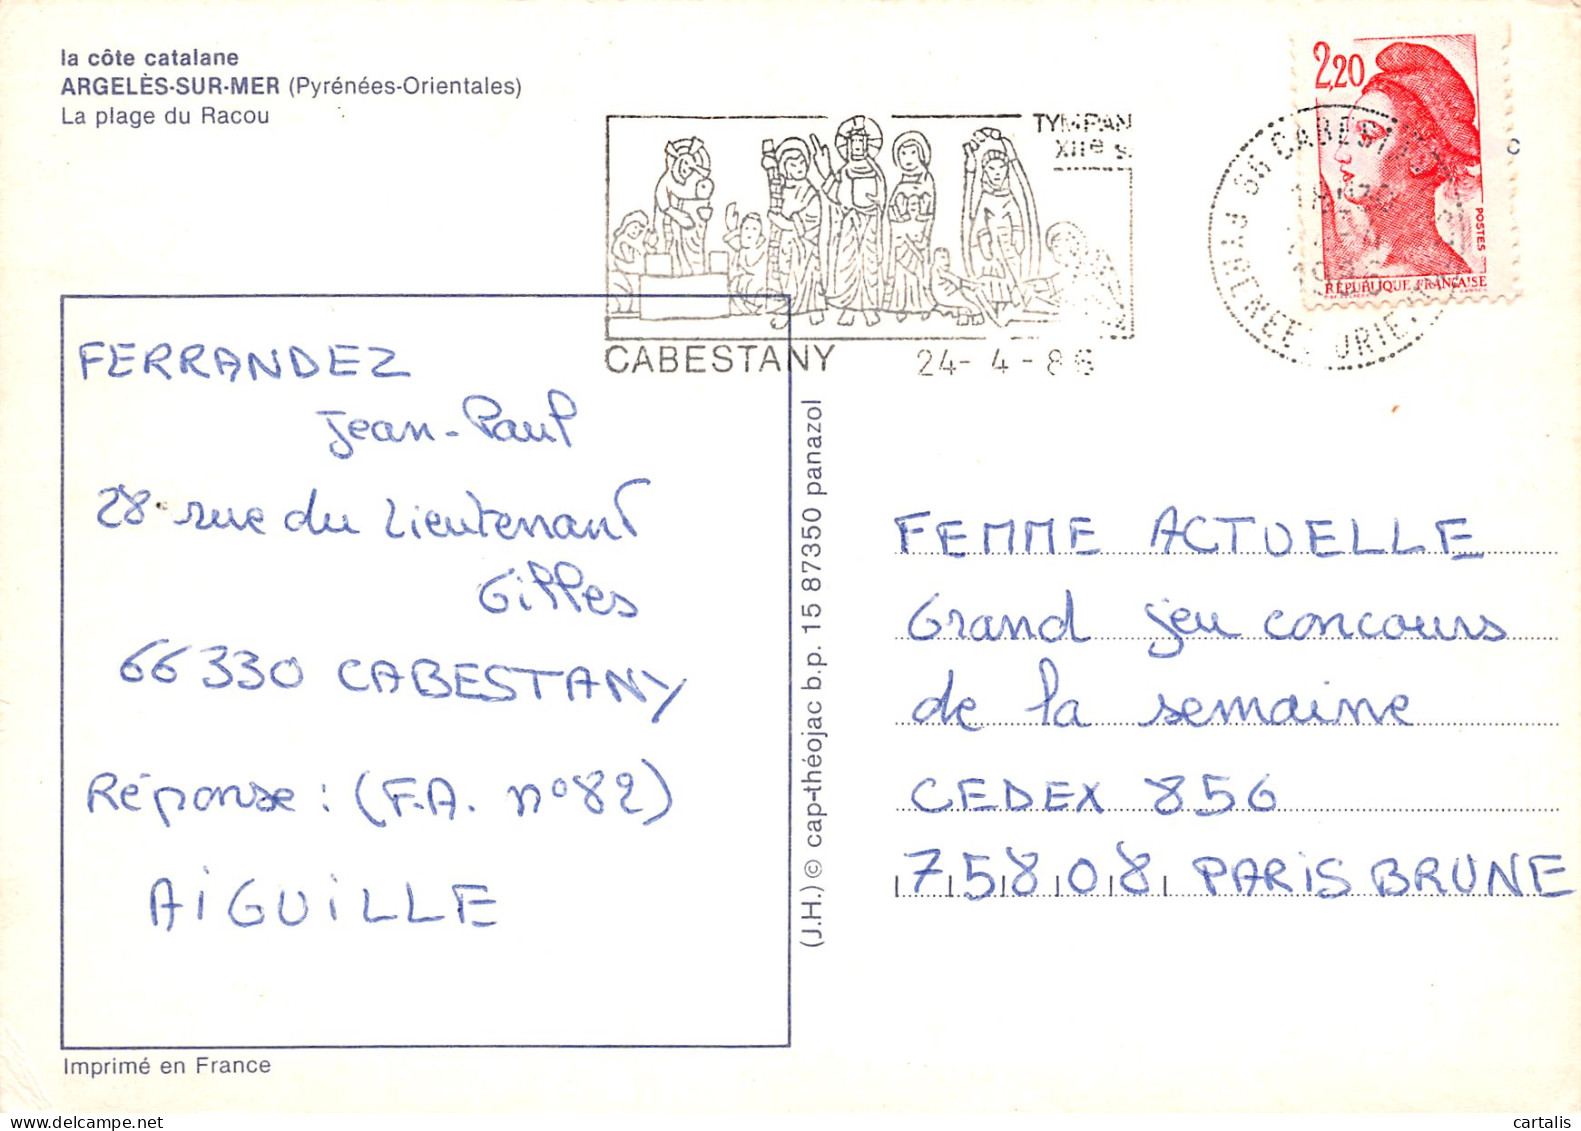 la côte catalane
ARGELÈS-SUR-MER (Pyrénées-Orientales)
La plage du Racou
TYMPAN
XIIe s.
CABESTANY 24-4-86
66 CABESTANY
2,20
POSTES
RÉPUBLIQUE FRANÇAISE
FERRANDEZ
Jean-Paul
28 rue du Lieutenant
Gilles
66330 CABESTANY
Réponse : (F.A. n°82)
AIGUILLE
(J.H.) © cap-théojac b.p. 15 87350 panazol
FEMME ACTUELLE
Grand jeu concours
de la semaine
CEDEX 856
75808 PARIS BRUNE
Imprimé en France
cartalis